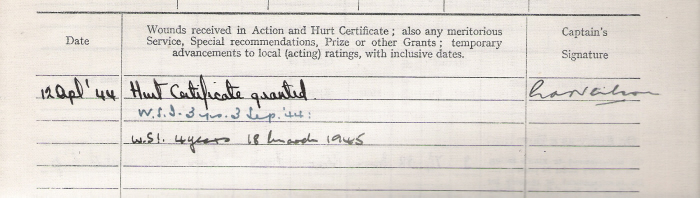 Date
Wounds received in Action and Hurt Certificate ; also any meritorious
Service, Special recommendations, Prize or other Grants ; temporary
advancements to local (acting) ratings, with inclusive dates.
Captain's
Signature
12 Apl '44 Hurt Certificate granted.
W.S.I. 3 yrs. 3 Sep. '44:
W.S.I. 4 years 18 March 1945